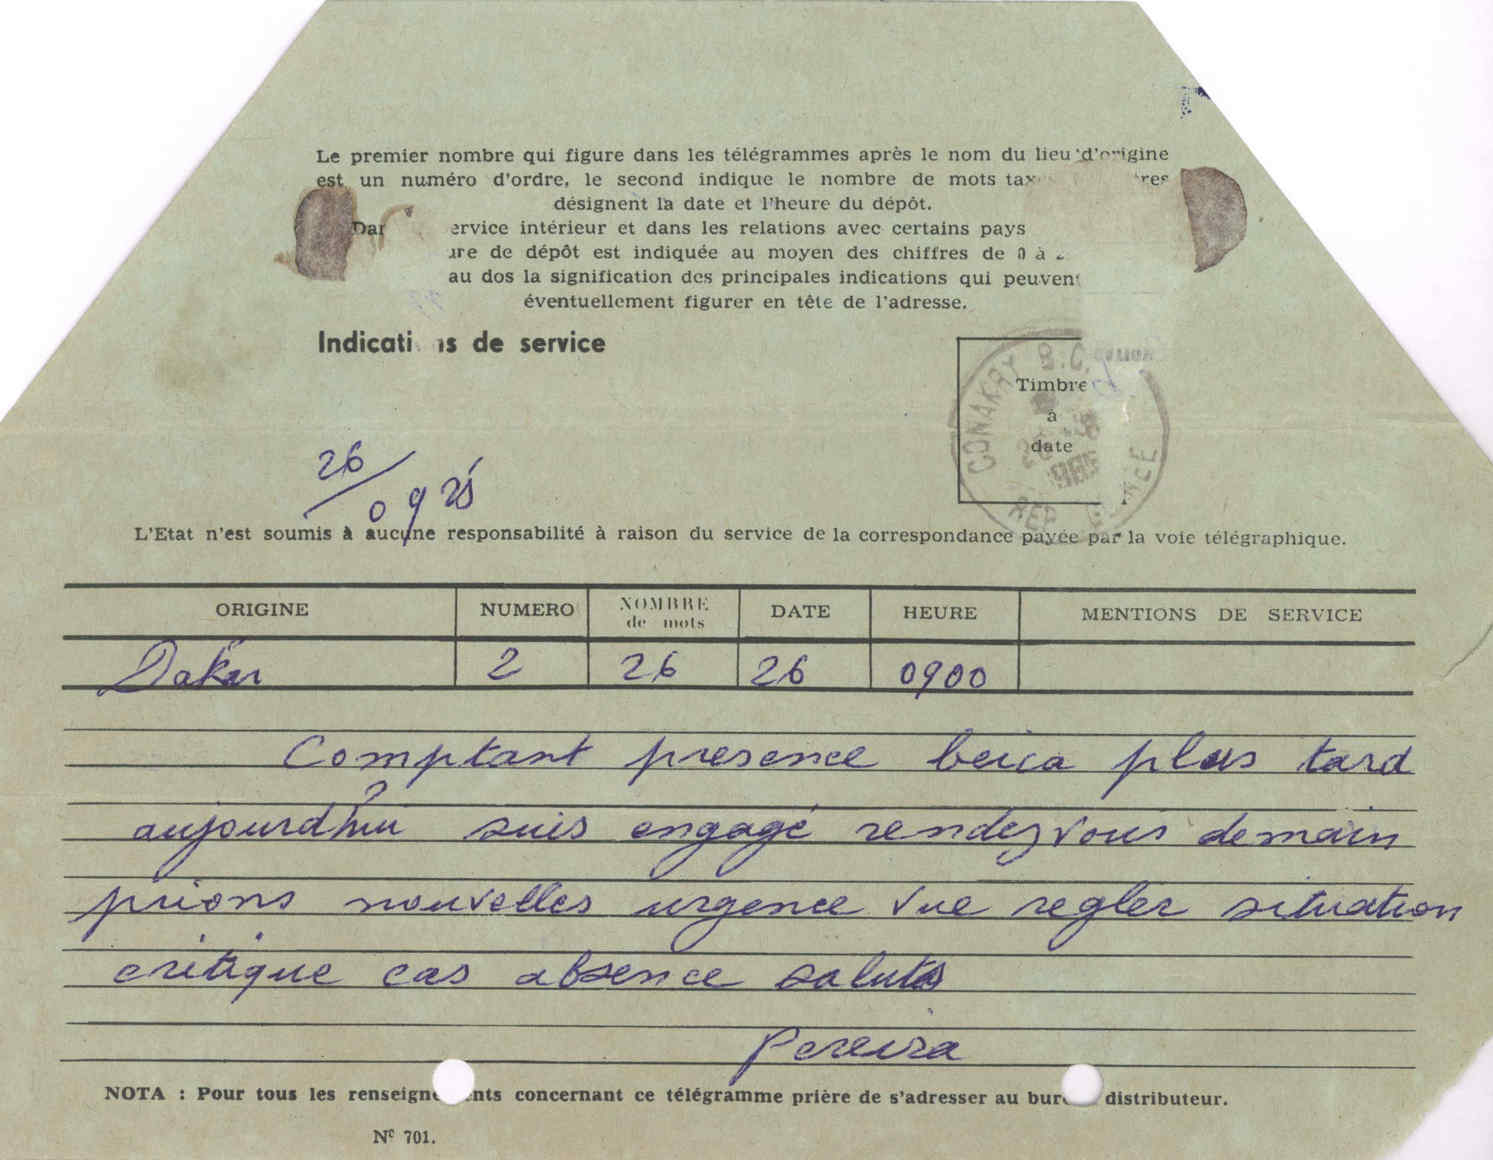 Le premier nombre qui figure dans les télégrammes après le nom du lieu d'origine
est un numéro d'ordre, le second indique le nombre de mots
désignent la date et l'heure du dépôt.
service intérieur et dans les relations avec certains pays
de dépôt est indiquée au moyen des chiffres de 0 à
au dos la signification des principales indications qui peuvent
éventuellement figurer en tête de l'adresse.
Indications de service
CONAKRY
REP
Timbre
à
date
26
09 25
L'Etat n'est soumis à aucune responsabilité à raison du service de la correspondance payée par la voie télégraphique.
ORIGINE NUMERO NOMBRE de mots DATE HEURE MENTIONS DE SERVICE
Dakar 2 26 26 0900
Comptant presence beica plus tard
aujourd'hui suis engagé rendez vous demain
prions nouvelles urgence vue regler situation
critique cas absence saluts
Pereira
NOTA : Pour tous les renseignements concernant ce télégramme prière de s'adresser au bureau distributeur.
Nº 701.